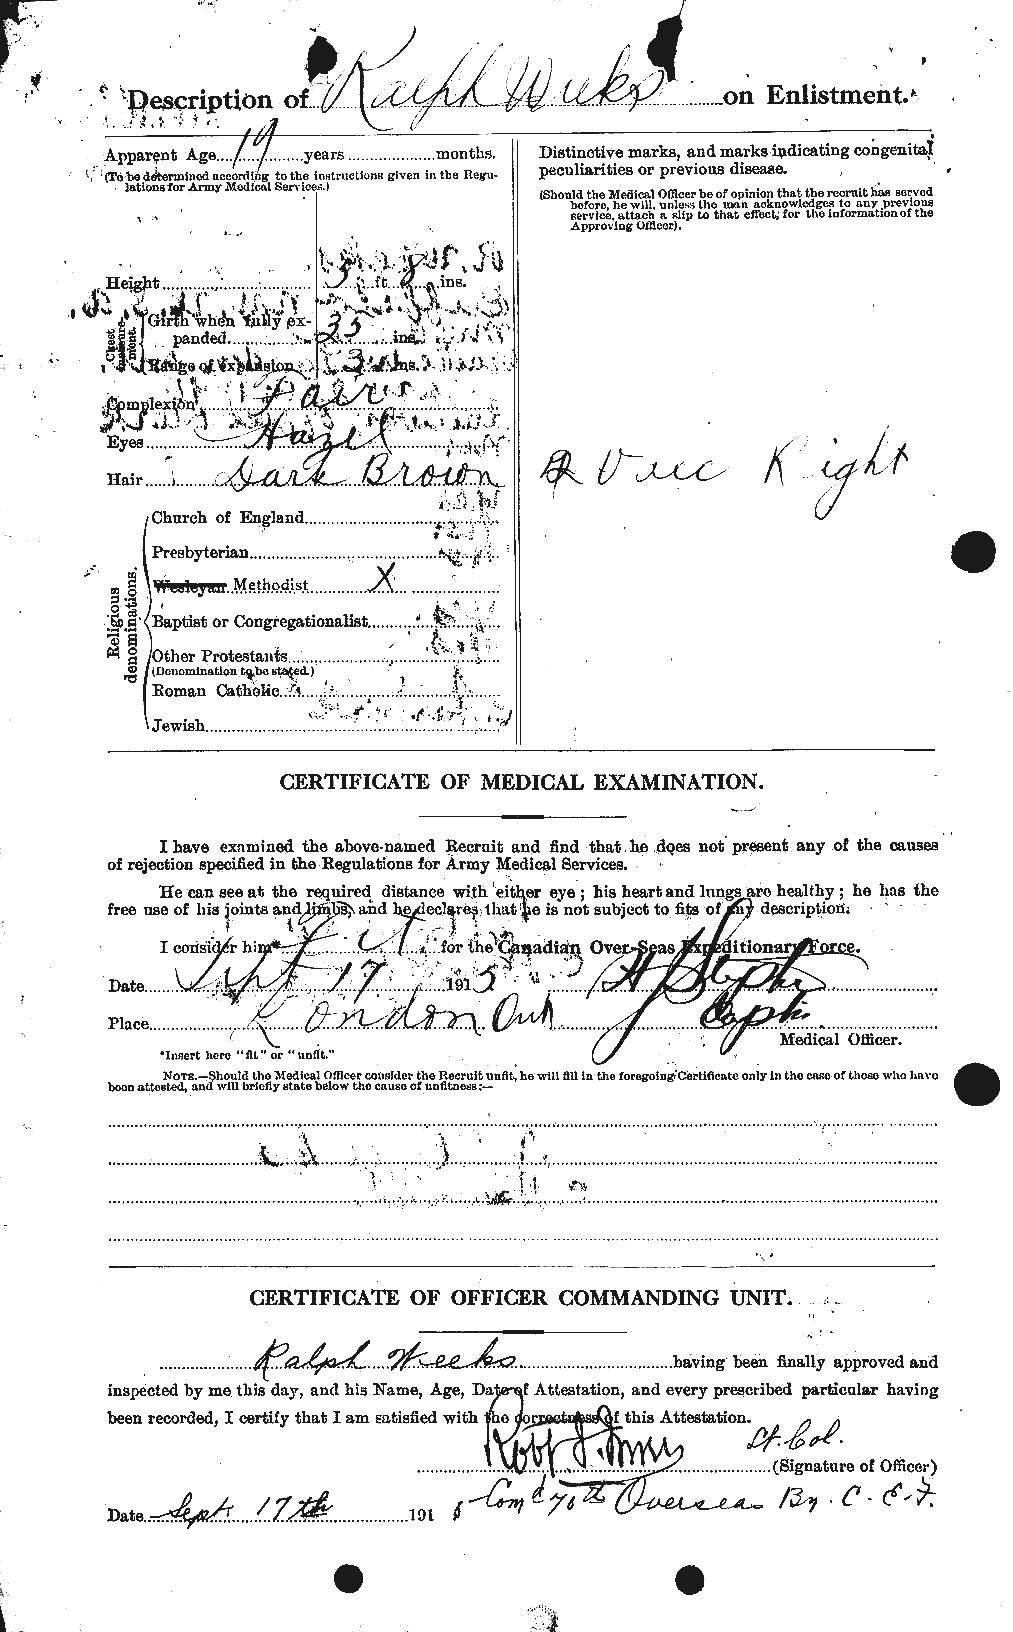 Description of Ralph Weeks on Enlistment.
Apparent Age 19 years months.
(To be determined according to the instructions given in the Regu-
lations for Army Medical Services.)
Height 5 ft. 8 ins.
Chest measure-ment.
Girth when fully ex-
panded 35 ins.
Range of expansion 3 ins.
Complexion Fair
Eyes Hazel
Hair Dark Brown
Religious denominations.
Church of England
Presbyterian
Wesleyan Methodist X
Baptist or Congregationalist
Other Protestants
(Denomination to be stated.)
Roman Catholic
Jewish
Distinctive marks, and marks indicating congenital
peculiarities or previous disease.
(Should the Medical Officer be of opinion that the recruit has served
before, he will, unless the man acknowledges to any previous
service, attach a slip to that effect, for the information of the
Approving Officer).
2 Vacc Right
CERTIFICATE OF MEDICAL EXAMINATION.
I have examined the above-named Recruit and find that he does not present any of the causes
of rejection specified in the Regulations for Army Medical Services.
He can see at the required distance with either eye; his heart and lungs are healthy; he has the
free use of his joints and limbs, and he declares that he is not subject to fits of any description.
I consider him* Fit for the Canadian Over-Seas Expeditionary Force.
Date Sept 17 1915
Place London Ont
Capt.
Medical Officer.
*Insert here "fit" or "unfit."
NOTE.—Should the Medical Officer consider the Recruit unfit, he will fill in the foregoing Certificate only in the case of those who have
been attested, and will briefly state below the cause of unfitness:—
CERTIFICATE OF OFFICER COMMANDING UNIT.
Ralph Weeks having been finally approved and
inspected by me this day, and his Name, Age, Date of Attestation, and every prescribed particular having
been recorded, I certify that I am satisfied with the correctness of this Attestation.
Lt. Col.
(Signature of Officer)
Date Sept 17th 1915 Comd 70th Overseas Bn. C. E. F.